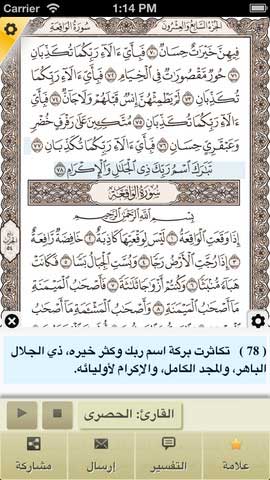 Carrier 1:14 PM
الجزء السابع والعشرون سورة الواقعة
فِيهِنَّ خَيْرَاتٌ حِسَانٌ ٧٠ فَبِأَيِّ آلَاءِ رَبِّكُمَا تُكَذِّبَانِ
٧١ حُورٌ مَقْصُورَاتٌ فِي الْخِيَامِ ٧٢ فَبِأَيِّ آلَاءِ رَبِّكُمَا
تُكَذِّبَانِ ٧٣ لَمْ يَطْمِثْهُنَّ إِنسٌ قَبْلَهُمْ وَلَا جَانٌّ ٧٤ فَبِأَيِّ
آلَاءِ رَبِّكُمَا تُكَذِّبَانِ ٧٥ مُتَّكِئِينَ عَلَى رَفْرَفٍ خُضْرٍ
وَعَبْقَرِيٍّ حِسَانٍ ٧٦ فَبِأَيِّ آلَاءِ رَبِّكُمَا تُكَذِّبَانِ ٧٧
تَبَارَكَ اسْمُ رَبِّكَ ذِي الْجَلَالِ وَالْإِكْرَامِ ٧٨
سُورَةُ الْوَاقِعَةِ
بِسْمِ اللَّهِ الرَّحْمَٰنِ الرَّحِيمِ
إِذَا وَقَعَتِ الْوَاقِعَةُ ١ لَيْسَ لِوَقْعَتِهَا كَاذِبَةٌ ٢ خَافِضَةٌ رَافِعَةٌ
٣ إِذَا رُجَّتِ الْأَرْضُ رَجًّا ٤ وَبُسَّتِ الْجِبَالُ بَسًّا ٥ فَكَانَتْ
هَبَاءً مُنْبَثًّا ٦ وَكُنتُمْ أَزْوَاجًا ثَلَاثَةً ٧ فَأَصْحَابُ
الْمَيْمَنَةِ مَا أَصْحَابُ الْمَيْمَنَةِ ٨ وَأَصْحَابُ الْمَشْأَمَةِ مَا أَصْحَابُ
( 78 ) تكاثرت بركة اسم ربك وكثر خيره، ذي الجلال
الباهر، والمجد الكامل، والإكرام لأوليائه.
القارئ: الحصري
علامة التفسير إرسال مشاركة